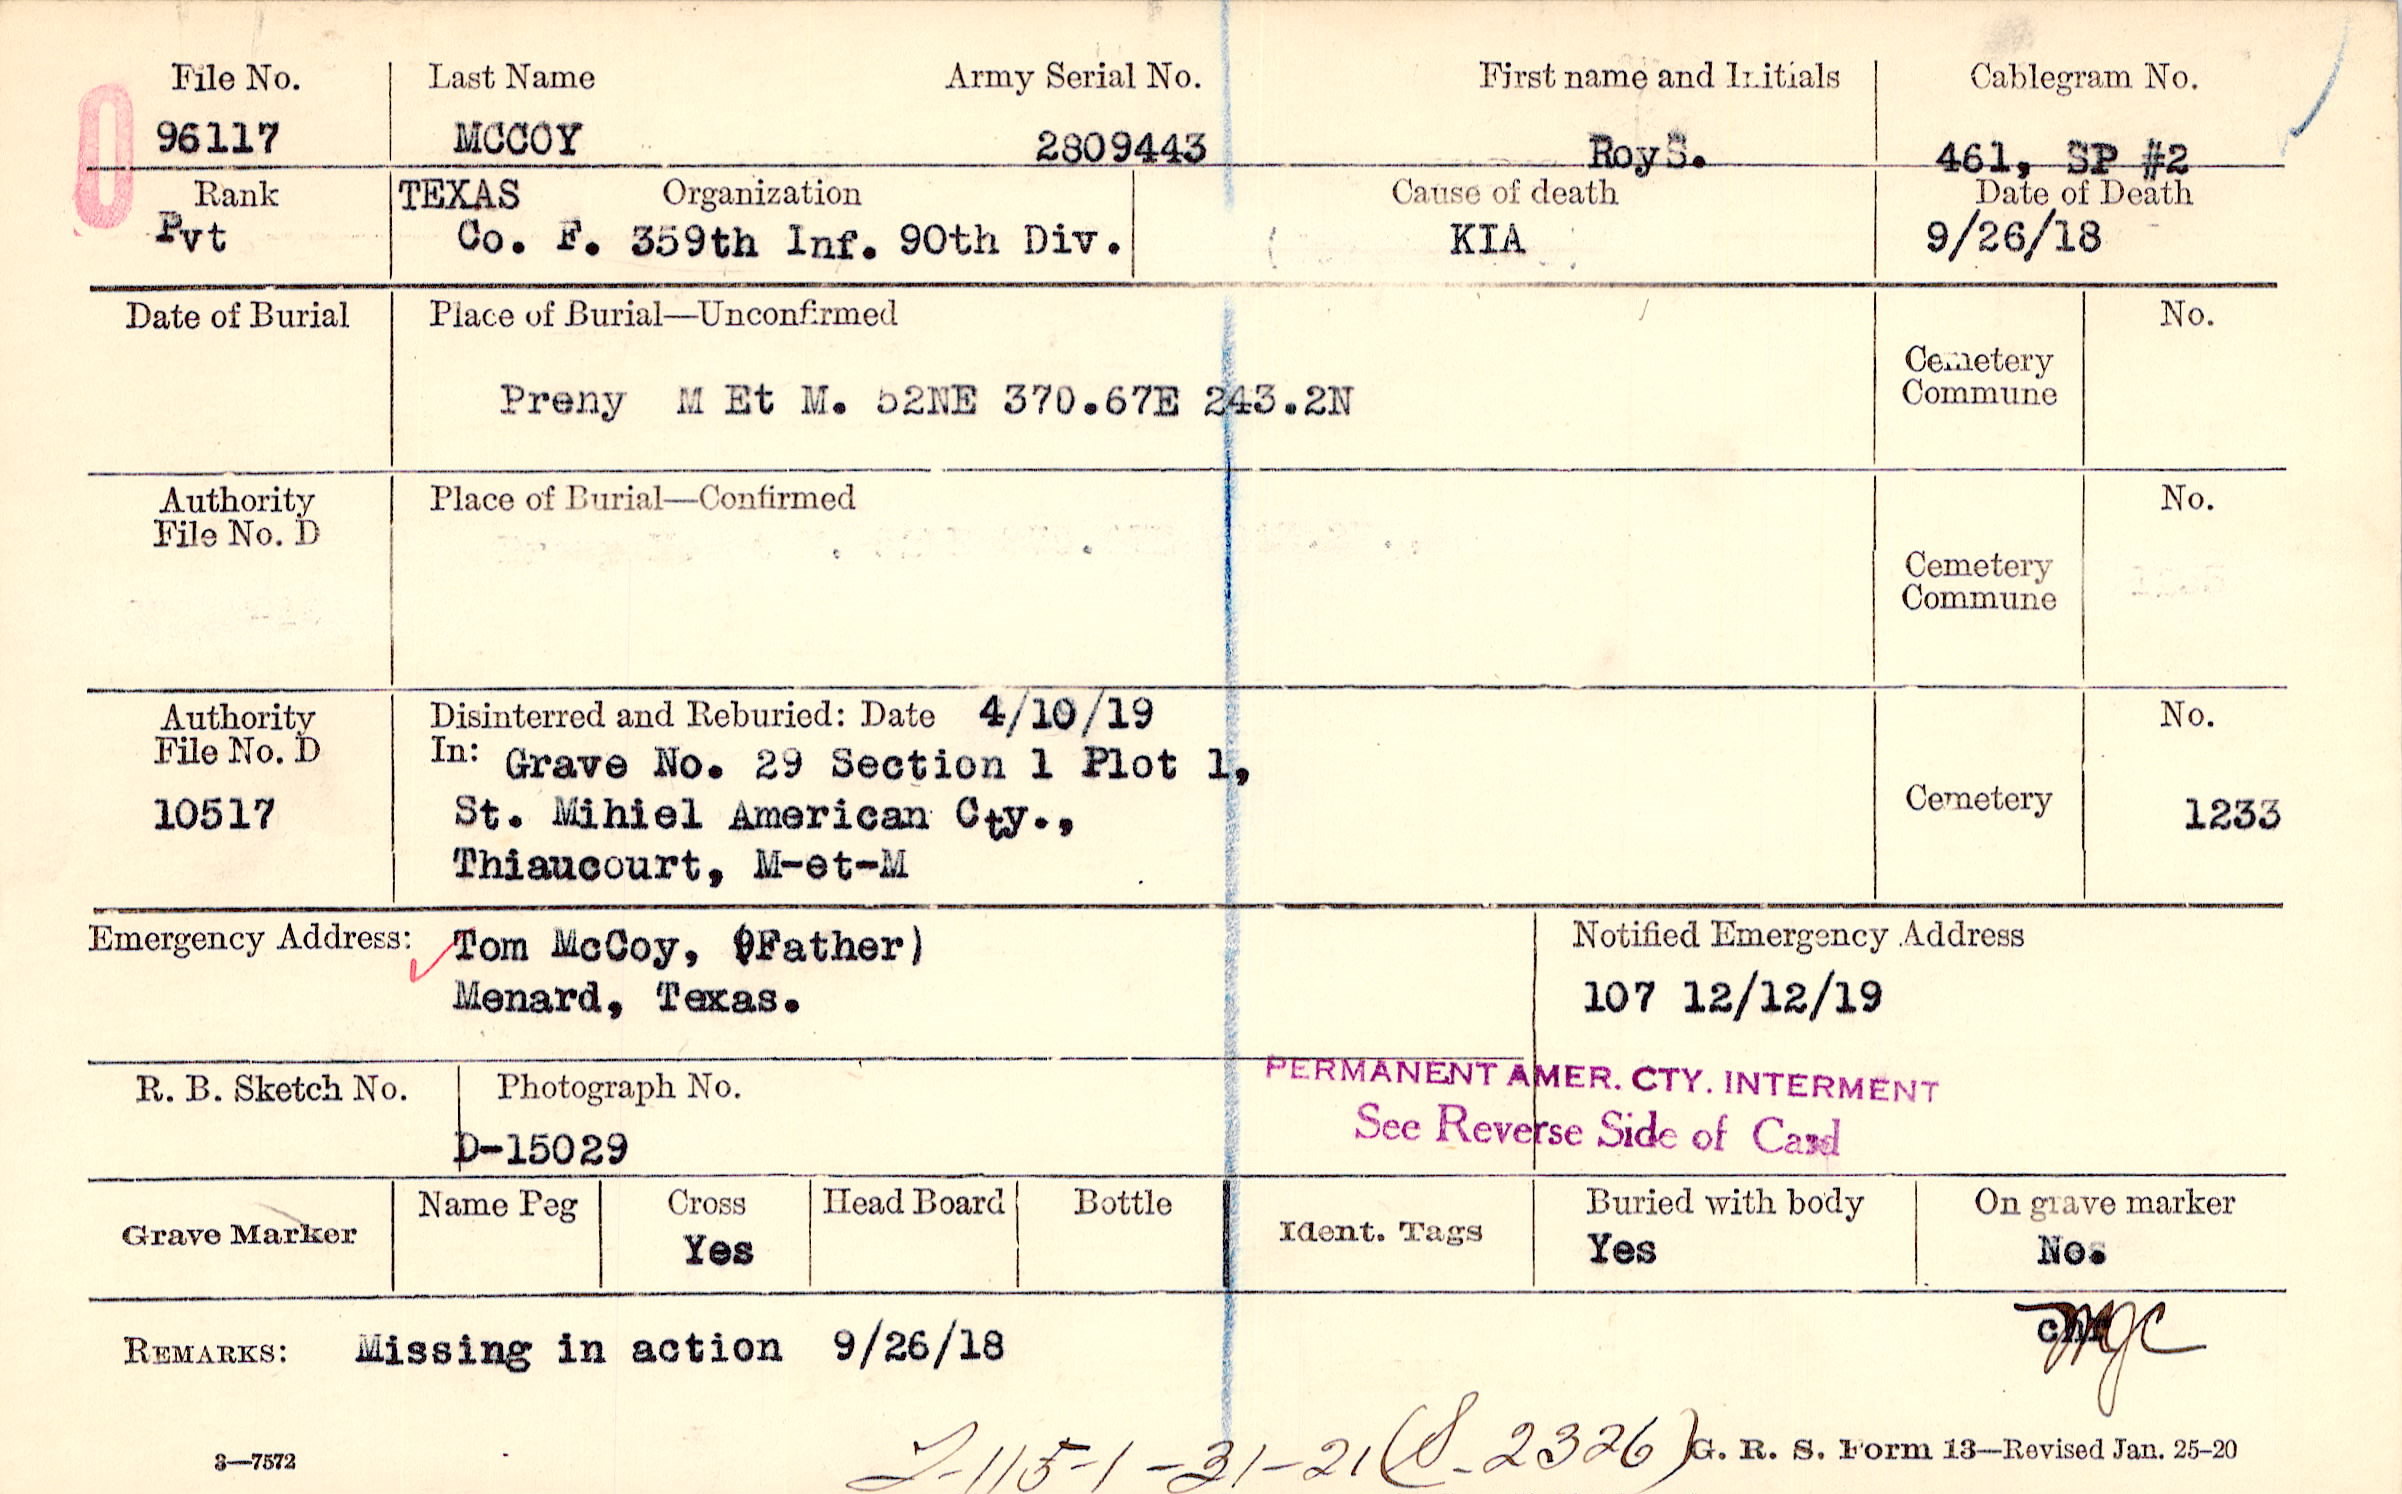 File No. Last Name Army Serial No. First name and Initials Cablegram No.
96117 MCCOY 2809443 Roy S. 461, SP #2
Rank TEXAS Organization Cause of death Date of Death
Pvt Co. F. 359th Inf. 90th Div. KIA 9/26/18
Date of Burial Place of Burial—Unconfirmed No.
Cemetery
Commune
Preny M Et M. 52NE 370.67E 243.2N
Authority Place of Burial—Confirmed No.
File No. D
Cemetery
Commune
Authority Disinterred and Reburied: Date 4/10/19 No.
File No. D In: Grave No. 29 Section 1 Plot 1,
10517 St. Mihiel American Cty., Cemetery 1233
Thiaucourt, M-et-M
Emergency Address: Tom McCoy, (Father) Notified Emergency Address
Menard, Texas. 107 12/12/19
R. B. Sketch No. Photograph No. PERMANENT AMER. CTY. INTERMENT
D-15029 See Reverse Side of Card
Grave Marker Name Peg Cross Head Board Bottle Ident. Tags Buried with body On grave marker
Yes Yes No.
REMARKS: Missing in action 9/26/18
3—7572 G. R. S. Form 13—Revised Jan. 25-20